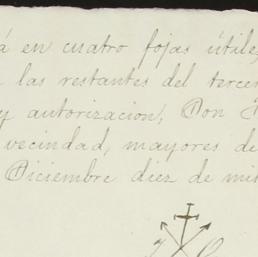 á en cuatro fojas útile
las restantes del tercer
y autorizacion, Don
vecindad, mayores de
Diciembre diez de mi